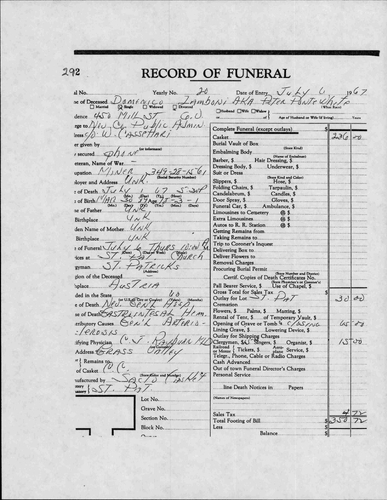 292
RECORD OF FUNERAL
al No. Yearly No. 20 Date of Entry July 6 1967
e of Deceased Dominico Zamboni AKA Peter Ponte White
Married Single Widowed Divorced
dence 450 Mill St G.V.
ge to Nev Co Public Admin
er given by
secured Phone
eteran, Name of War
upation Miner 349-28-1561
(Social Security Number)
loyer and Address Unk
of Death July 67
of Birth
e of Father Unk
hplace Unk
den Name of Mother Unk
hplace Unk
of Funeral July 6 Thurs 10:00
ices at St Pat Church
gyman St. Patricks
gion of the Deceased
hplace Austria
ded in the State 60
e of Death Nev. Gen'l Hosp.
se of Death Gastrointestal Hem.
tributory Causes Gen'l Arterio-
fying Physician C.J.
Address Grass Valley
Remains to
of Casket
ufactured by
ery St. Pat
Lot No.
Grave No.
Section No.
Block No.
Complete Funeral (except outlays) $
Casket
Burial Vault of Box
Embalming Body
Barber, $ Hair Dressing, $
Dressing Body, $ Underwear, $
Suit or Dress
Slippers, $ Hose, $
Folding Chairs, $ Tarpaulin, $
Candelabrum, $ Candles, $
Door Spray, $ Gloves, $
Funeral Car, $ Ambulance, $
Limousines to Cemetery @ $
Extra Limousines @ $
Autos to R. R. Station @ $
Getting Remains from
Taking Remains to
Trip to Coroner's Inquest
Delivering Box to
Deliver Flowers to
Removal Charges
Procuring Burial Permit
Certif. Copies of Death Certificates No.
Pall Bearer Service, $ Use of Chapel, $
Gross Total for Sales Tax $
Outlay for Lot St Pat 30 00
Cremation
Flowers, $ Palms, $ Matting, $
Rental of Tent, $ of Temporary Vault, $
Opening of Grave or Tomb
Lining Grave, $ Lowering Device, $
Outlay for Shipping Charges
Clergymen, $ Singers, $ Organist, $ 15 00
Tickets, $ Service, $
Telegr., Phone, Cable or Radio Charges
Cash Advanced
Out of town Funeral Director's Charges
Personal Service
lime Death Notices in Papers
(Names of Newspapers)
Sales Tax 4 72
Total Footing of Bill $ 350 72
Less $
Balance $